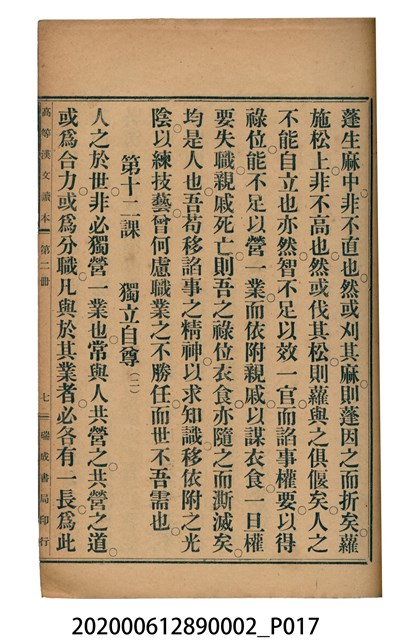 蓬生麻中。非不直也。然或刈其麻。則蓬因之而折矣。蘿
施松上。非不高也。然或伐其松。則蘿與之俱偃矣。人之
不能自立也亦然。智不足以效一官。而諂事權要以得
祿位。能不足以營一業。而依附親戚以謀衣食。一旦權
要失職。親戚死亡。則吾之祿位衣食。亦隨之而澌滅矣。
均是人也。吾苟移諂事之精神以求知識。移依附之光
陰以練技藝。曾何慮職業之不勝任。而世不吾需也。
第十二課　獨立自尊(二)
人之於世。非必獨營一業也。常與人共營之。共營之道。
或為合力。或為分職。凡與於其業者。必各有一長。為此
高等漢文讀本 第二冊 七 瑞成書局印行
202000612890002_P017